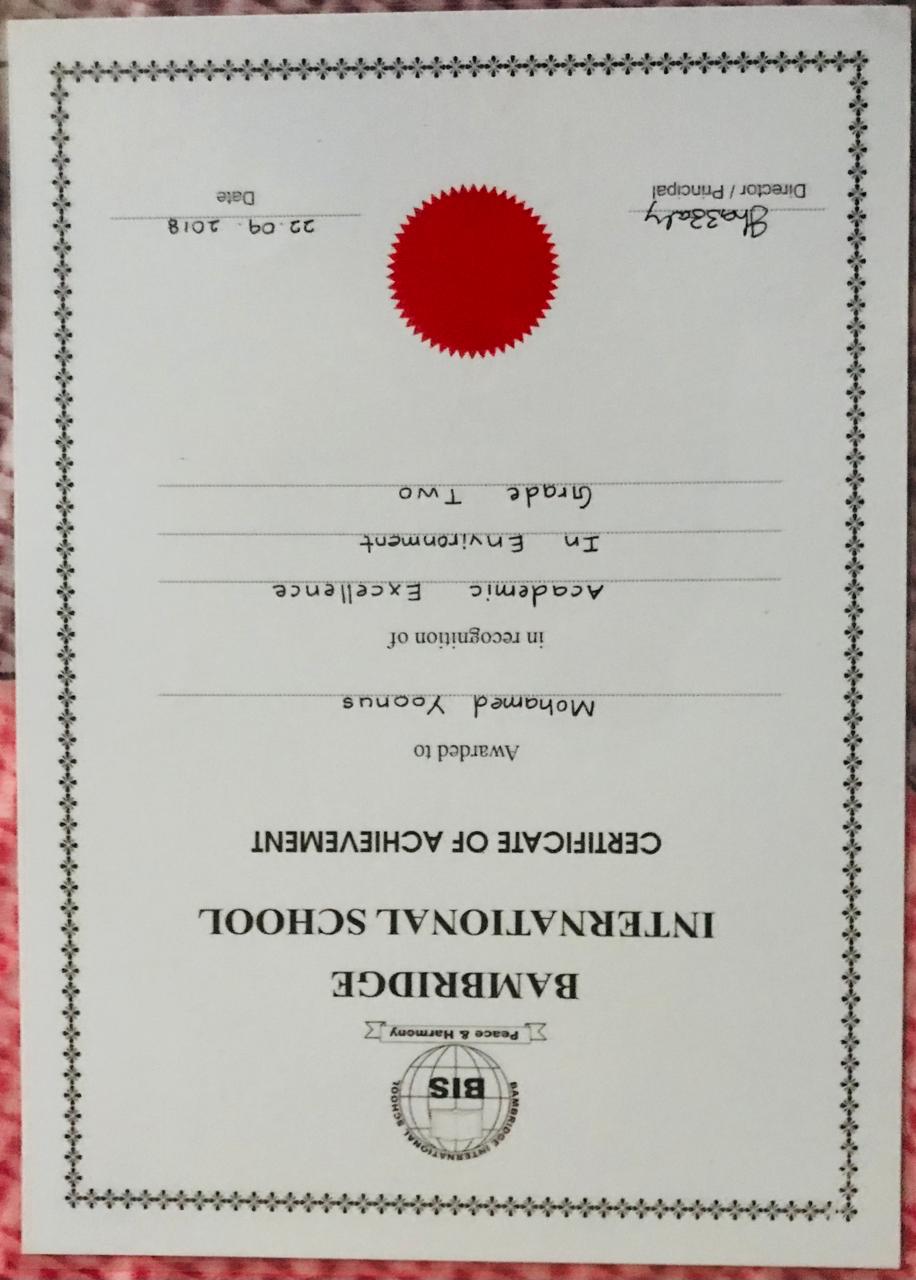 BAMBRIDGE INTERNATIONAL SCHOOL
BIS
Peace & Harmony
BAMBRIDGE
INTERNATIONAL SCHOOL
CERTIFICATE OF ACHIEVEMENT
Awarded to
Mohamed Yoonus
in recognition of
Academic Excellence
In Environment
Grade Two
22.09.2018
Director / Principal
Date